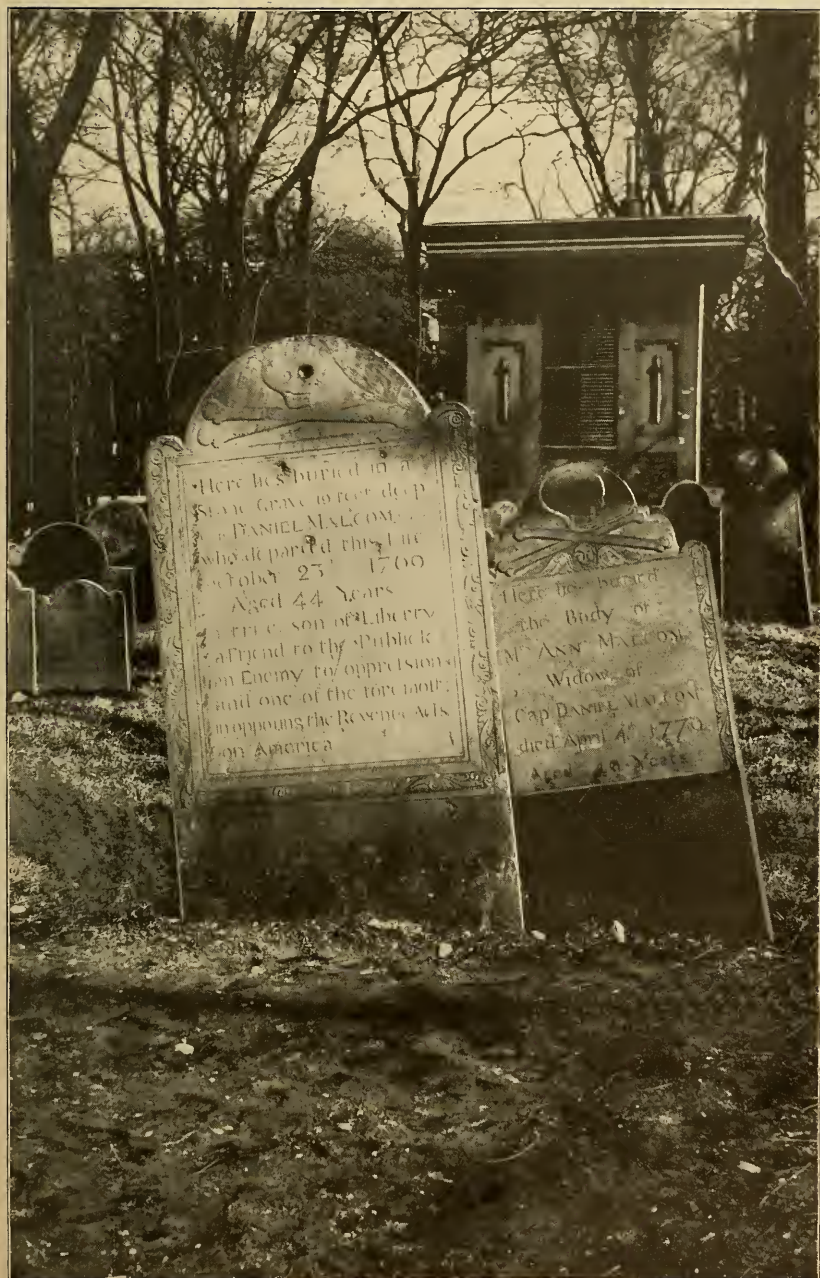 Here lies buried in a
Stone Grave 10 feet deep
DANIEL MALCOM
who departed this Life
October 23d 1769
Aged 44 Years
a true son of Liberty
a Friend to the Publick
an Enemy to oppression
and one of the foremost
in opposing the Revenue Acts
on America
Here lies buried
the Body of
Mrs ANN MALCOM
Widow of
Cap DANIEL MALCOM
died April 4th 1770
Aged 40 Years